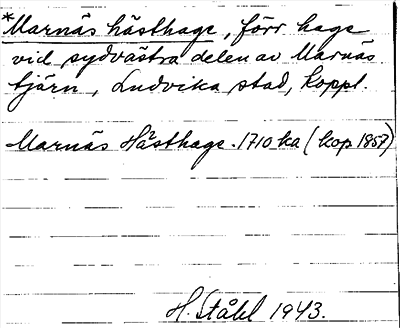 *Marnäs hästhage, förr hage
vid sydvästra delen av Marnäs
tjärn, Ludvika stad, Koppl.
Marnäs Hästhage. 1710 ka (kop 1857)
H. Ståhl 1943.